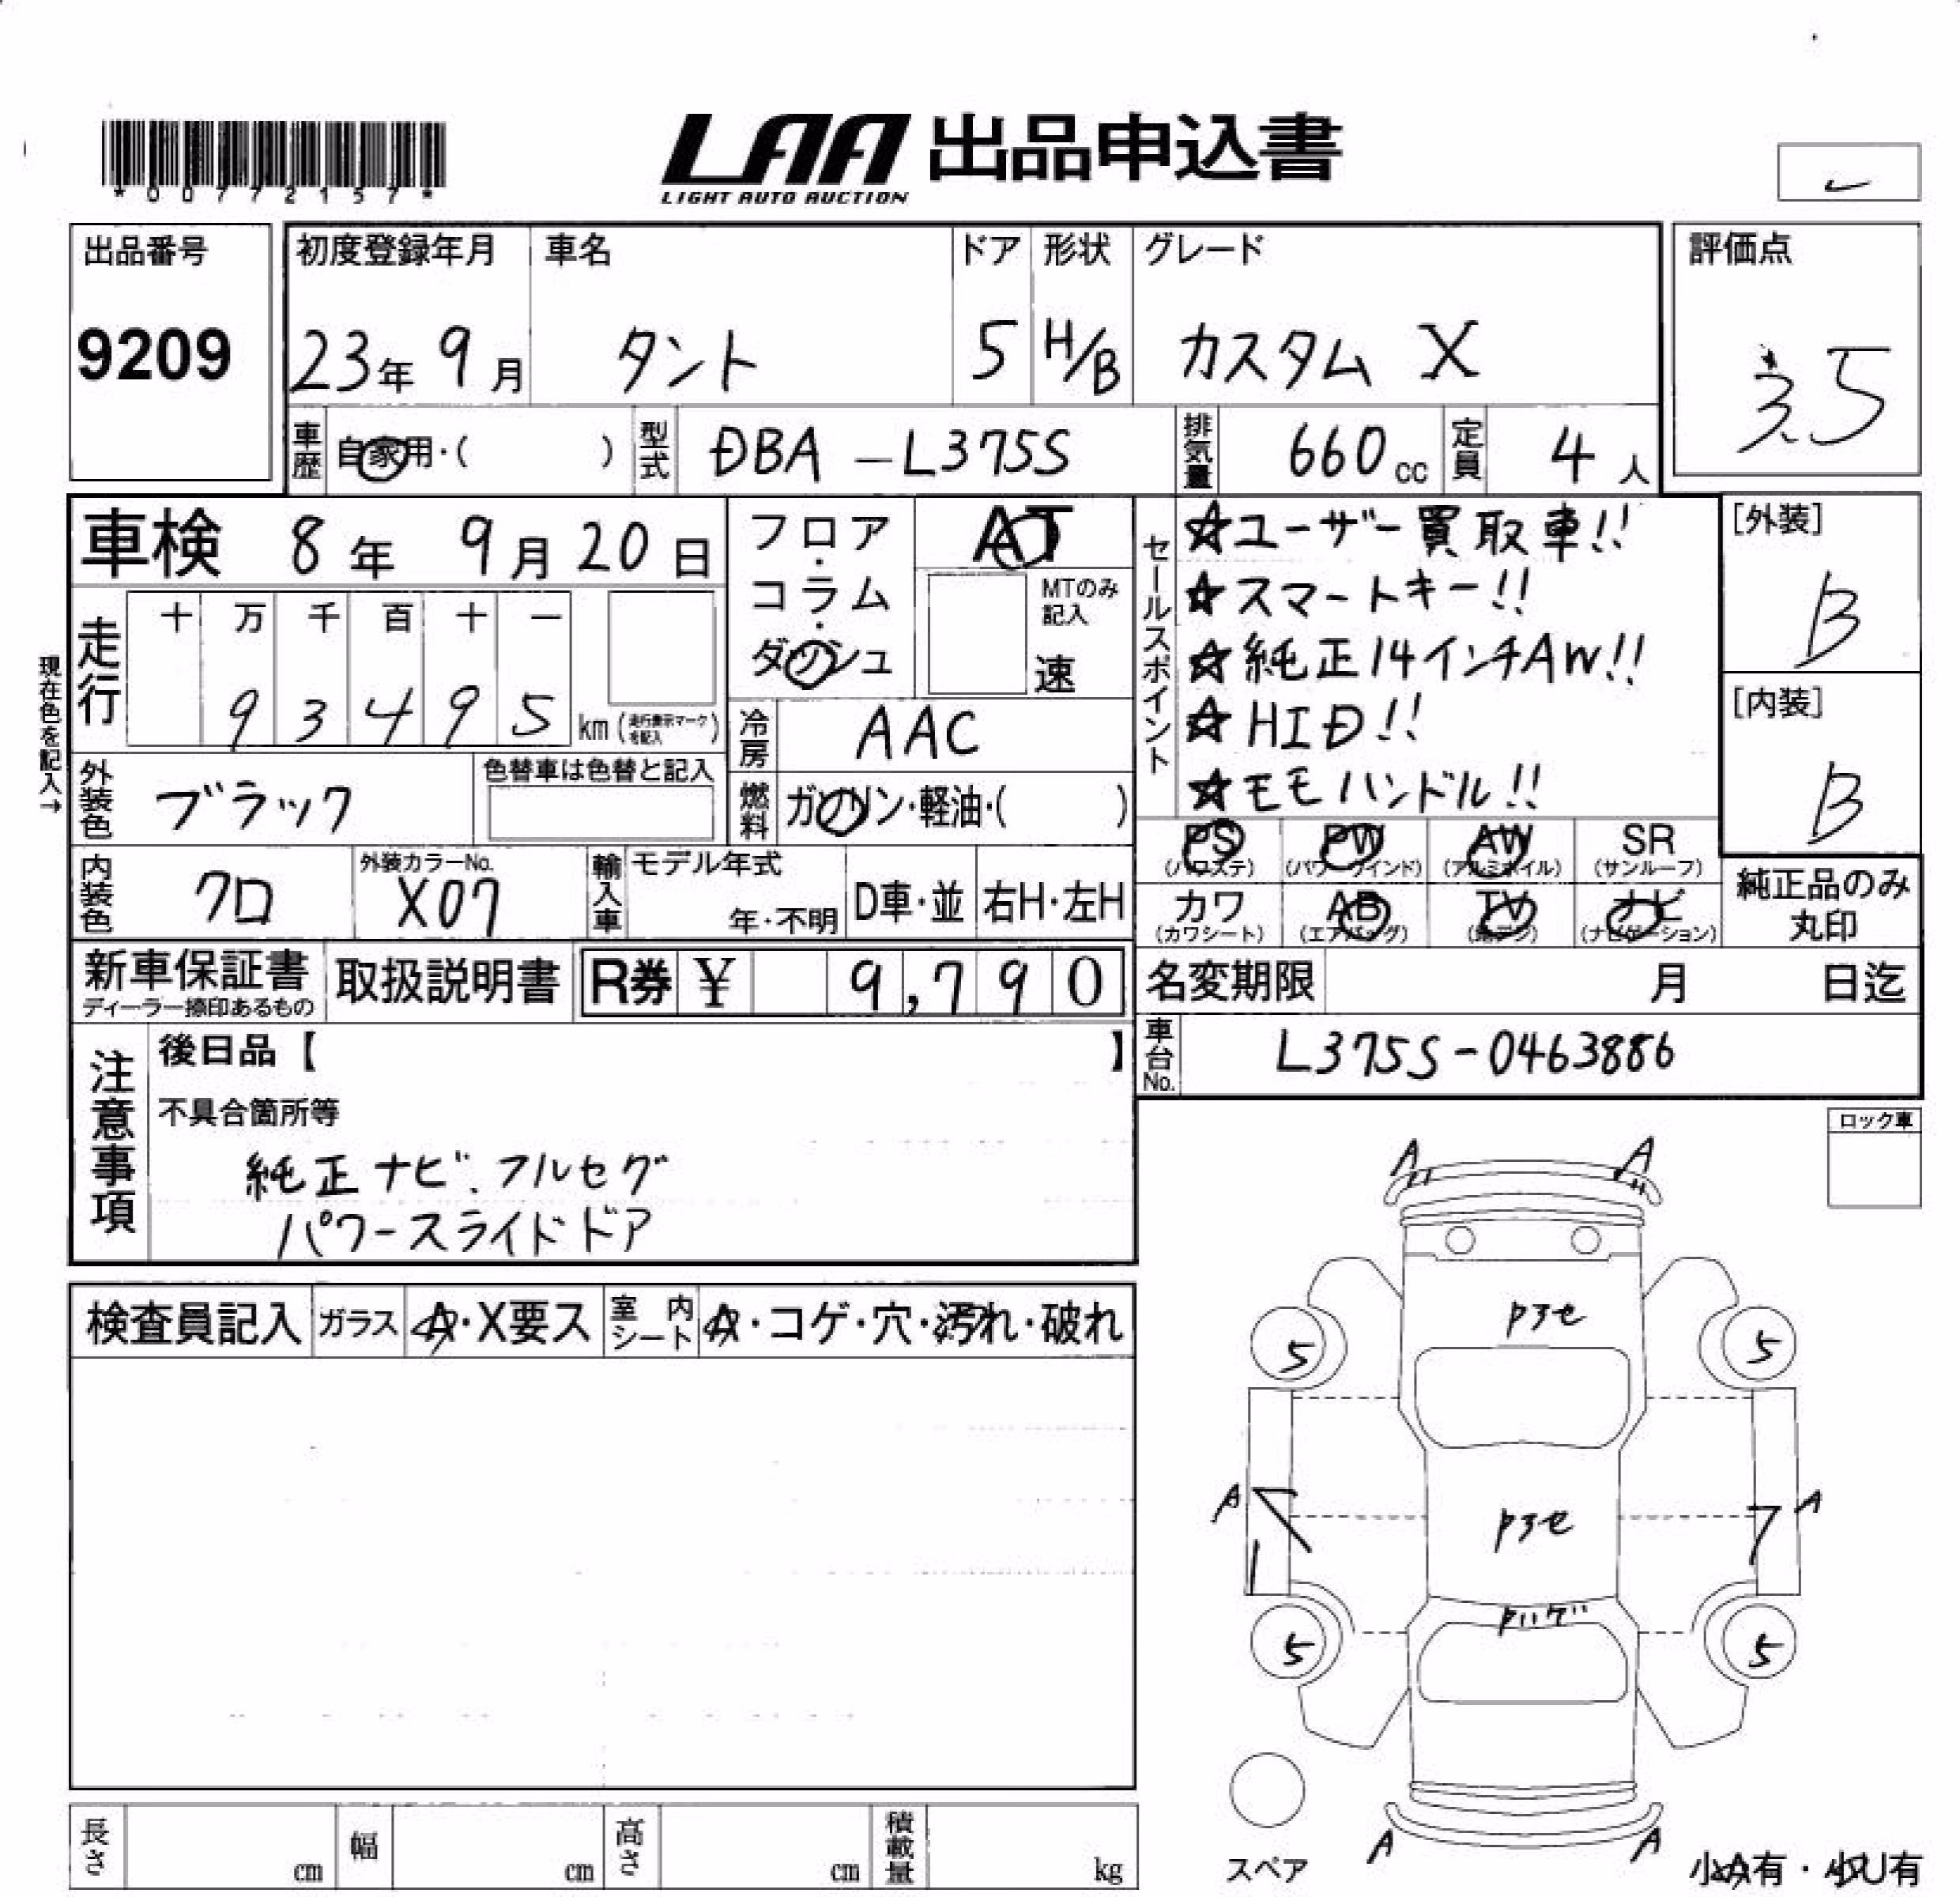 *00772157*
LAA 出品申込書
LIGHT AUTO AUCTION
出品番号
9209
初度登録年月
23年 9月
車名
タント
ドア
5
形状
H/B
グレード
カスタム X
評価点
3.5
車歴
自家用・( )
型式
DBA-L375S
排気量
660cc
定員
4人
車検 8年 9月 20日
フロア・コラム・ダッシュ
AT
MTのみ記入
速
セールスポイント
☆ユーザー買取車!!
☆スマートキー!!
☆純正14インチAW!!
☆HID!!
☆モモハンドル!!
[外装]
B
[内装]
B
現在色を記入→
走行
十 万 千 百 十 一
9 3 4 9 5 km (走行表示マークを記入)
冷房
AAC
外装色
ブラック
色替車は色替と記入
燃料
ガソリン・軽油・( )
内装色
クロ
外装カラーNo.
X07
輸入車
モデル年式
年・不明
D車・並
右H・左H
PS
(パワステ)
PW
(パワーウインド)
AW
(アルミホイル)
SR
(サンルーフ)
カワ
(カワシート)
AB
(エアバッグ)
TV
ナビ
(ナビゲーション)
純正品のみ
丸印
新車保証書
ディーラー捺印あるもの
取扱説明書
R券 ¥ 9,790
名変期限 月 日迄
車台No.
L375S-0463886
注意事項
後日品【 】
不具合箇所等
純正ナビ.フルセグ
パワースライドドア
ロック車
検査員記入
ガラス
A・X要ス
室内シート
A・コゲ・穴・汚れ・破れ
A A
アヲセ
5 5
A A
アヲセ
5 5
A A
スペア
小A有・小U有
長さ cm
幅 cm
高さ cm
積載量 kg